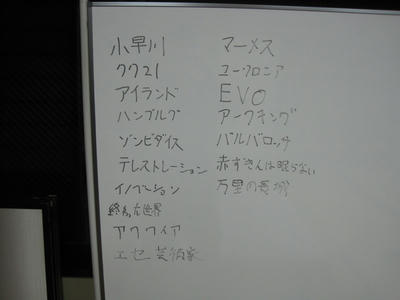 小早川
クク21
アイランド
ハンブルグ
ゾンビダイス
テレストレーション
イノベーション
世界
アクワイア
エセ芸術家
マーメス
ユークロニア
EVO
アークキング
バルバロッサ
赤ずきんは眠らない
万里の長城